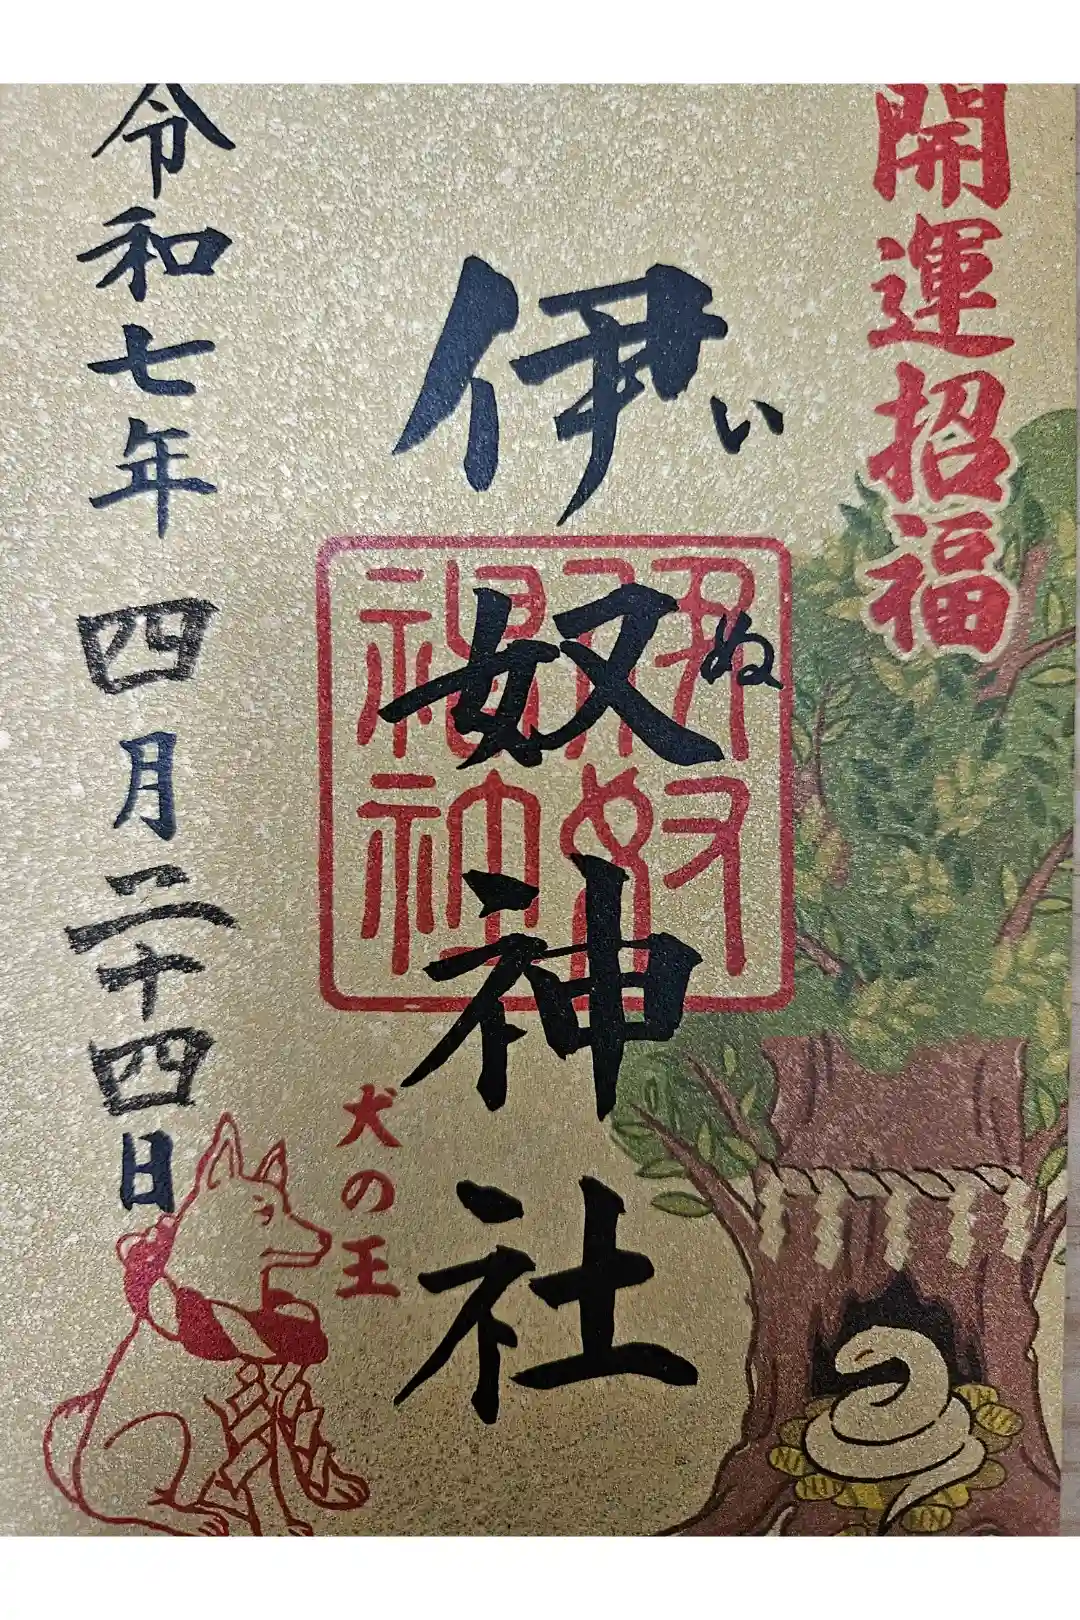 開運招福
伊奴神社
いぬ
伊奴神社
犬の王
令和七年四月二十四日